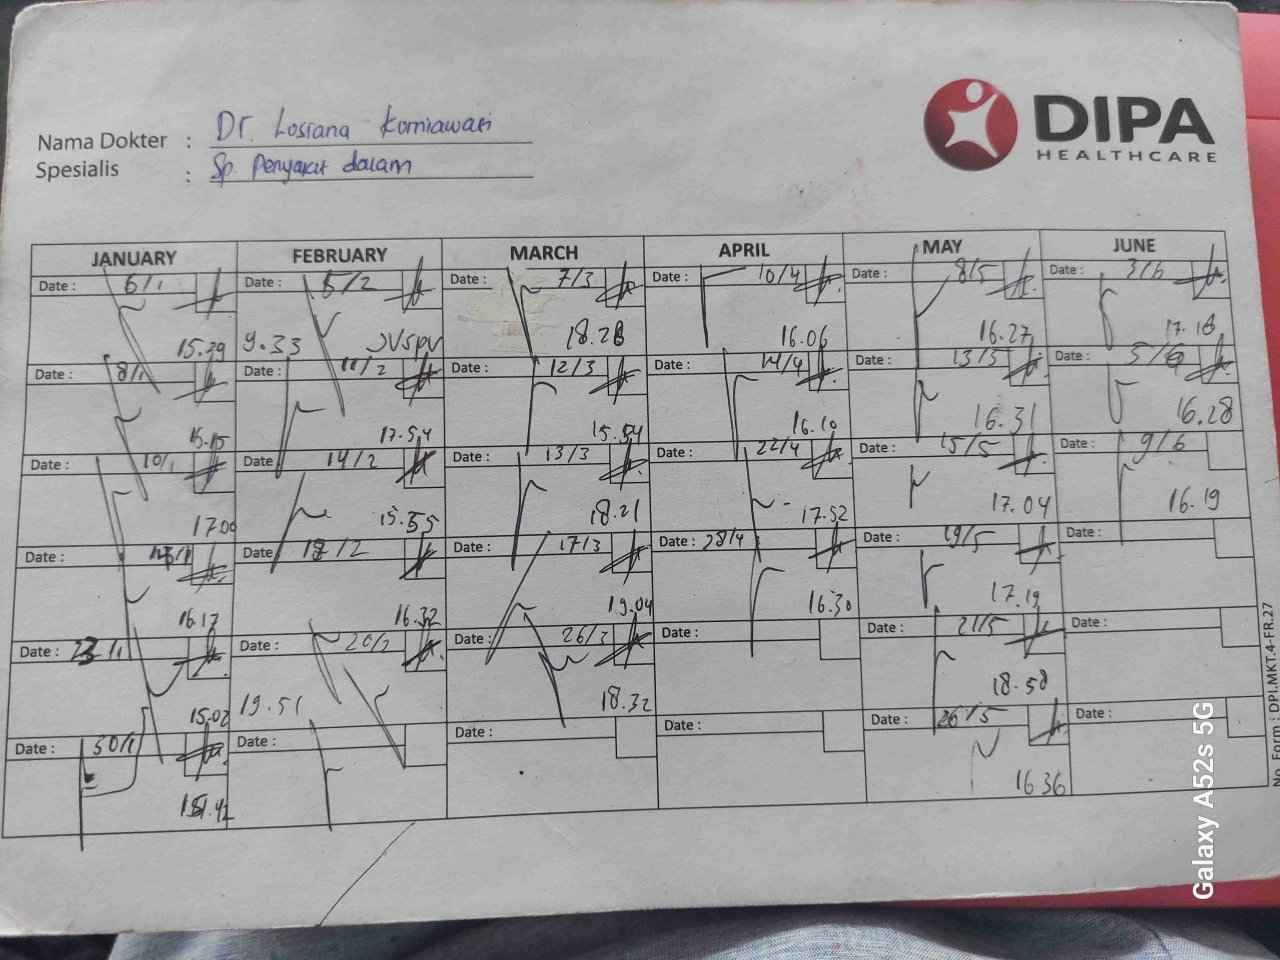 Nama Dokter : Dr. Losiana Korniawati
Spesialis : Sp. Penyakit dalam
DIPA
HEALTHCARE
JANUARY FEBRUARY MARCH APRIL MAY JUNE
Date : 6/1 Date : 5/2 Date : 7/3 Date : 10/4 Date : 8/5 Date : 3/6
15.39 9.33 JVSPV 18.28 16.06 16.27 17.18
Date : 8/1 Date : 11/2 Date : 12/3 Date : 14/4 Date : 13/5 Date : 5/6
15.15 17.54 15.54 16.10 16.31 16.28
Date : 10/1 Date 14/2 Date : 13/3 Date : 22/4 Date : 15/5 Date : 9/6
17.00 15.55 18.21 17.52 17.04 16.19
Date : Date 18/2 Date : 17/3 Date : 28/4 Date : 19/5 Date :
16.17 16.32 19.04 16.30 17.19
Date : 23/1 Date : 20/2 Date : 26/3 Date : Date : 21/5 Date :
15.02 19.51 18.32 18.58
Date : 30/1 Date : Date : Date : Date : 26/5 Date :
16 36
No. Form : DPI.MKT.4-FR.27
Galaxy A52s 5G